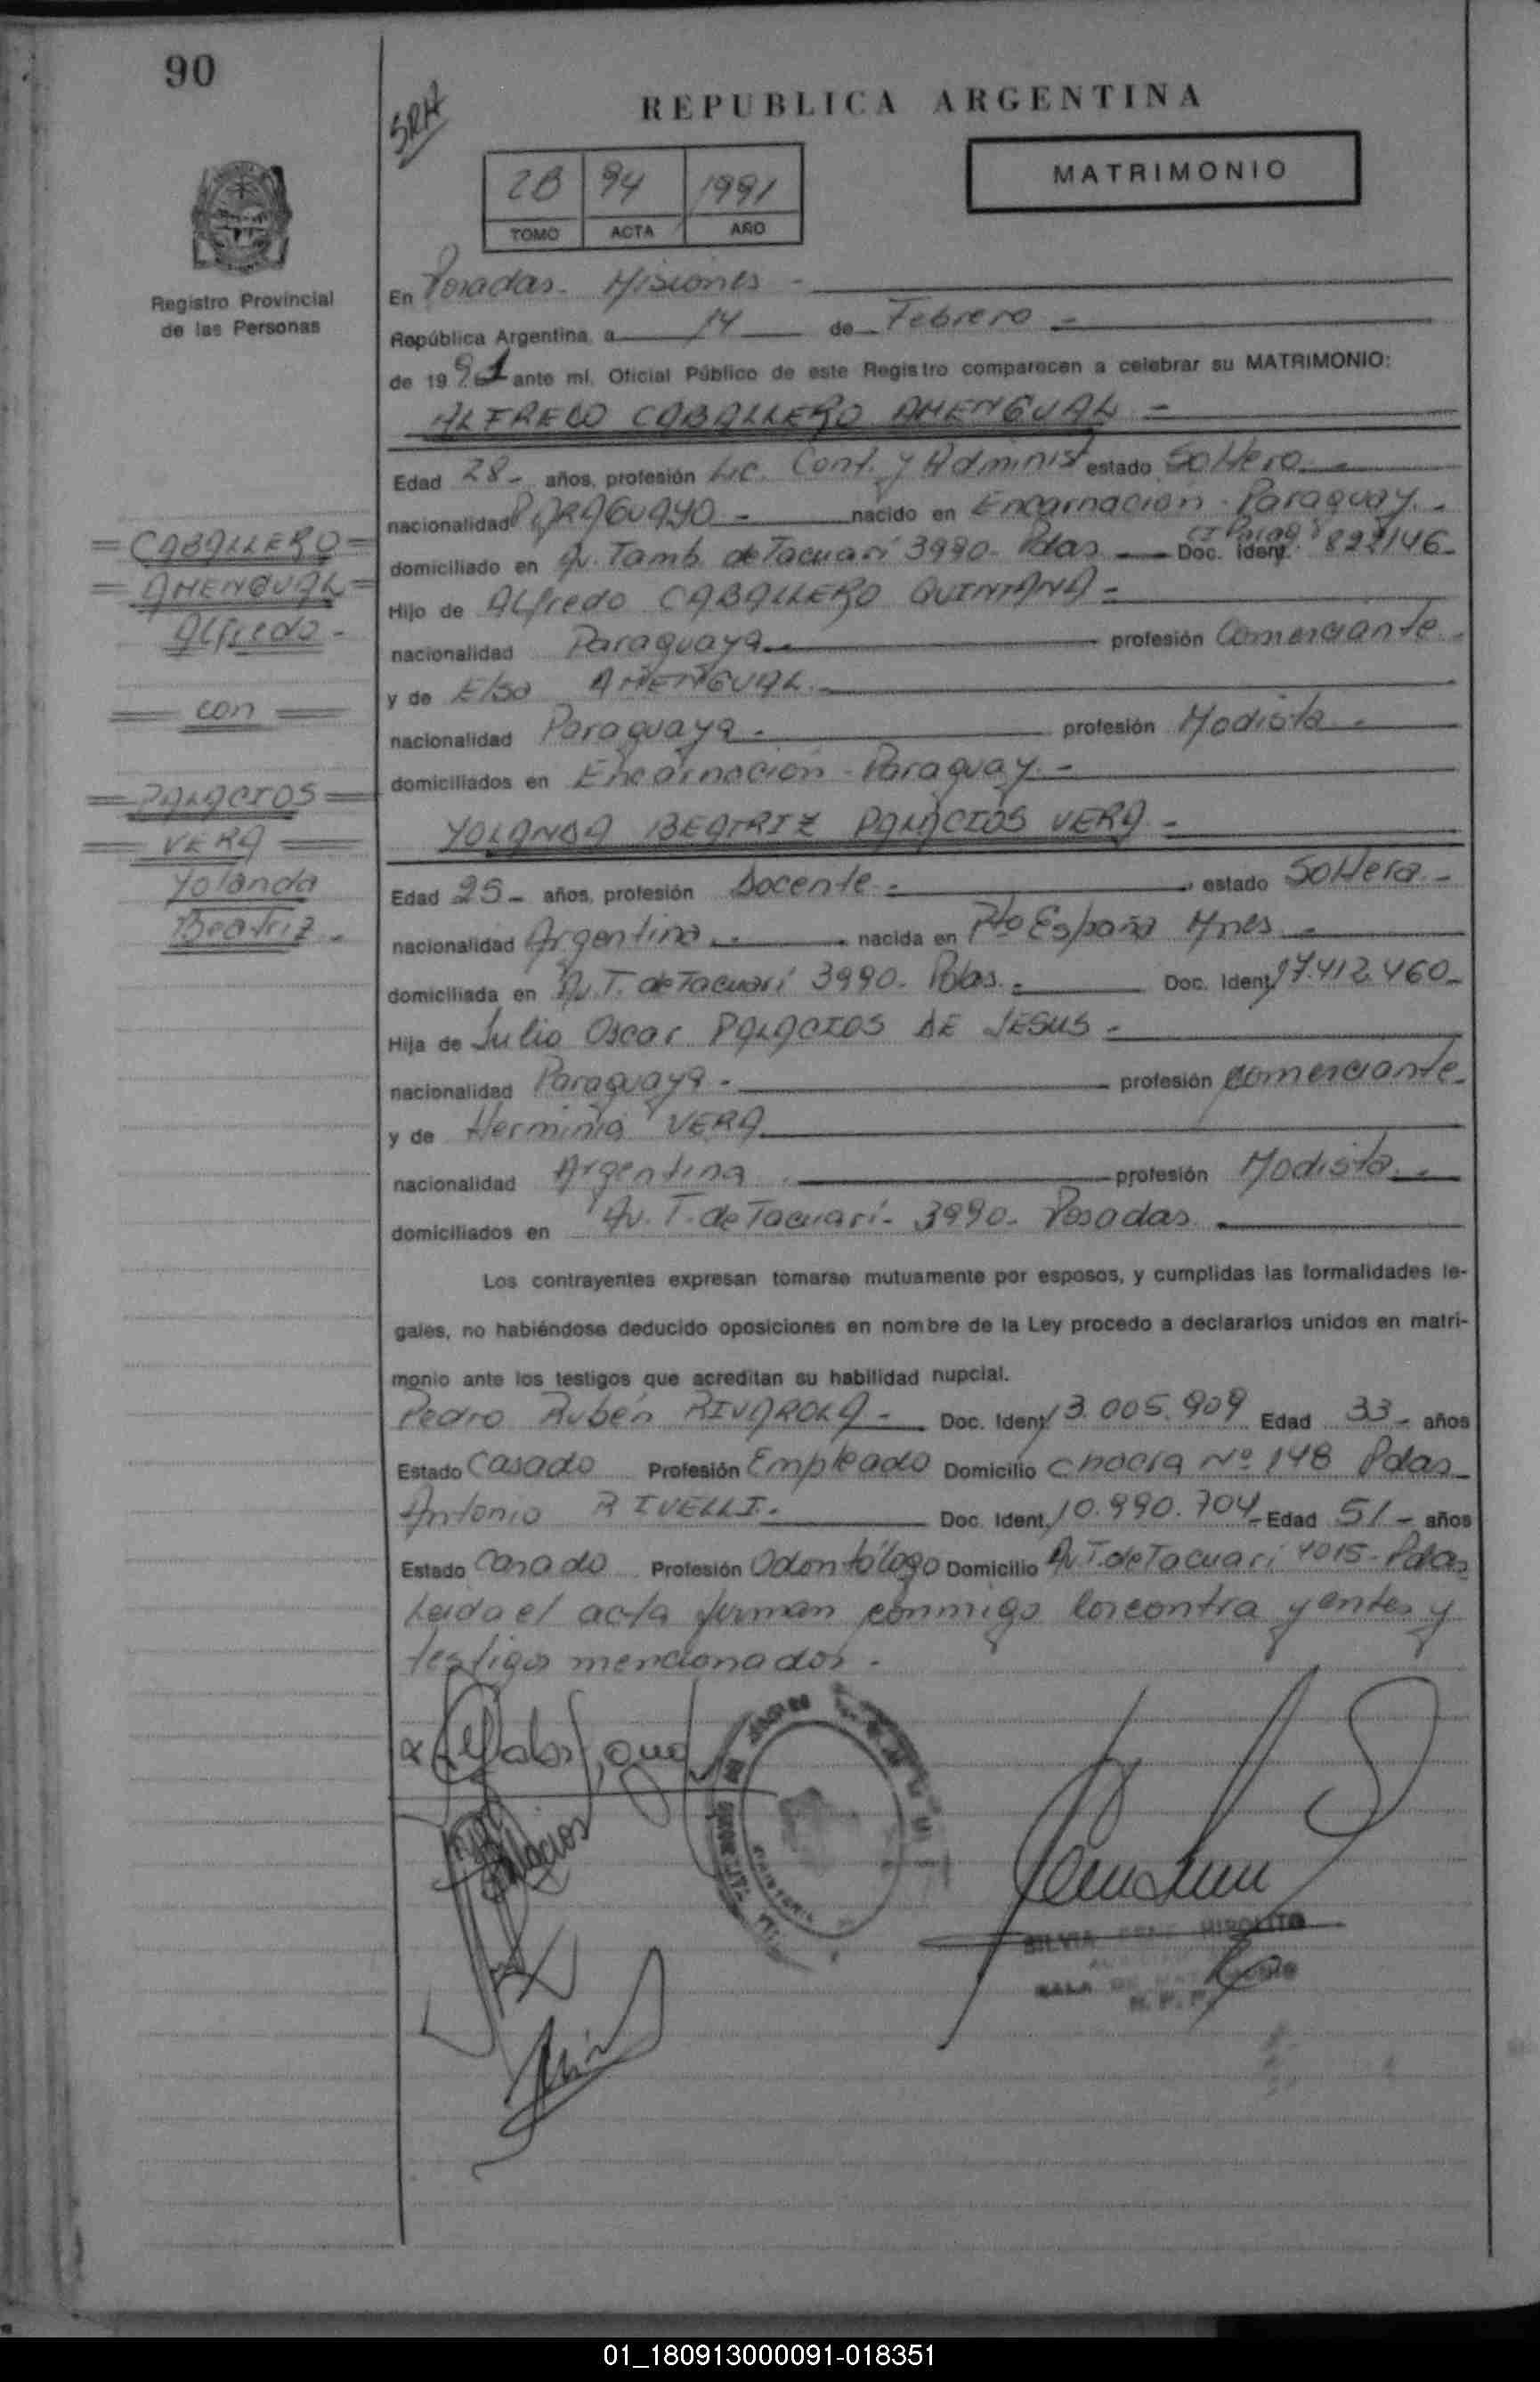 90
SRH
REPUBLICA ARGENTINA
MATRIMONIO
2B 94 1991
TOMO ACTA AÑO
Registro Provincial
de las Personas
En Posadas - Misiones -
República Argentina, a 14 de Febrero -
de 1991 ante mí, Oficial Público de este Registro comparecen a celebrar su MATRIMONIO:
ALFREDO CABALLERO AMENGUAL -
Edad 28 - años, profesión Lic. Cont. y Administ estado Soltero -
nacionalidad PARAGUAYO - nacido en Encarnación - Paraguay. -
domiciliado en Av. Tamb. de Tacuarí 3990 - Pdas - Doc. Ident. CI Parag 822146 -
Hijo de Alfredo CABALLERO QUINTANA -
nacionalidad Paraguaya profesión Comerciante -
y de Elsa AMENGUAL -
nacionalidad Paraguaya - profesión Modista -
domiciliados en Encarnación - Paraguay. -
YOLANDA BEATRIZ PALACIOS VERA -
Edad 25 - años, profesión Docente - estado Soltera -
nacionalidad Argentina - nacida en Pto España Mnes -
domiciliada en Av. T. de Tacuarí 3990 - Pdas. - Doc. Ident. 17.412.460 -
Hija de Julio Oscar PALACIOS DE JESUS -
nacionalidad Paraguaya - profesión comerciante -
y de Herminia VERA
nacionalidad Argentina profesión Modista -
domiciliados en Av. T. de Tacuarí - 3990 - Posadas
Los contrayentes expresan tomarse mutuamente por esposos, y cumplidas las formalidades le-
gales, no habiéndose deducido oposiciones en nombre de la Ley procedo a declararlos unidos en matri-
monio ante los testigos que acreditan su habilidad nupcial.
Pedro Rubén RIVAROLA - Doc. Ident. 13.005.909 Edad 33 - años
Estado Casado Profesión Empleado Domicilio Chacra Nº 148 Pdas -
Antonio RIVELLI - Doc. Ident. 10.990.704 - Edad 51 - años
Estado Casado Profesión Odontólogo Domicilio Av. T. de Tacuarí 4015 - Pdas
Leida el acta firman conmigo los contra yentes y
testigos mencionados -
= CABALLERO =
= AMENGUAL =
Alfredo -
= con =
= PALACIOS =
= VERA =
Yolanda
Beatriz -
Palacios
SILVIA RENE HIPOLITO
SALA DE MATRIMONIO
R. P. P.
01_180913000091-018351